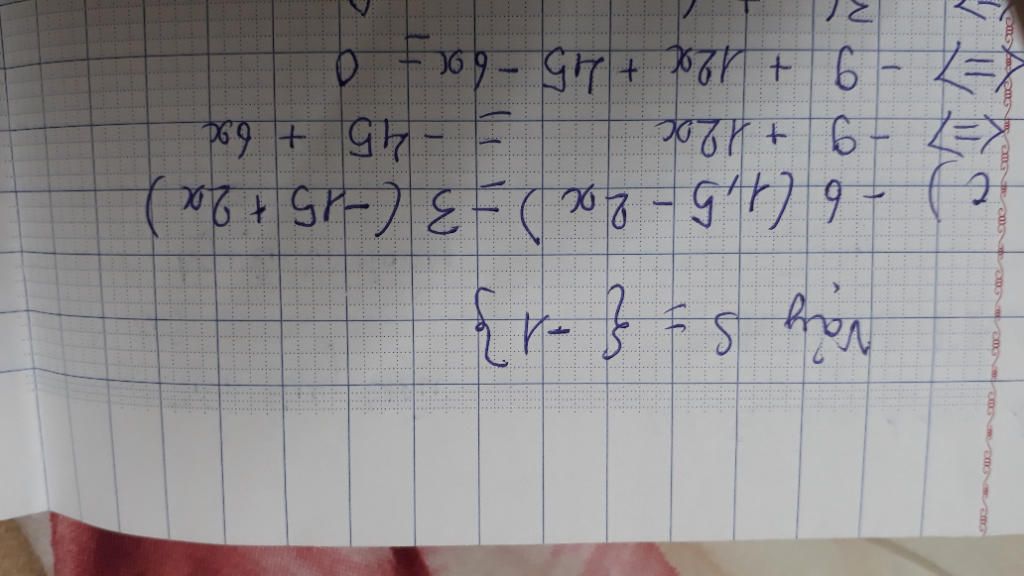 Vậy S = { -1 }
c) - 6 ( 1,5 - 2x ) = 3 ( -15 + 2x )
<=> - 9 + 12x = - 45 + 6x
<=> - 9 + 12x + 45 - 6x = 0